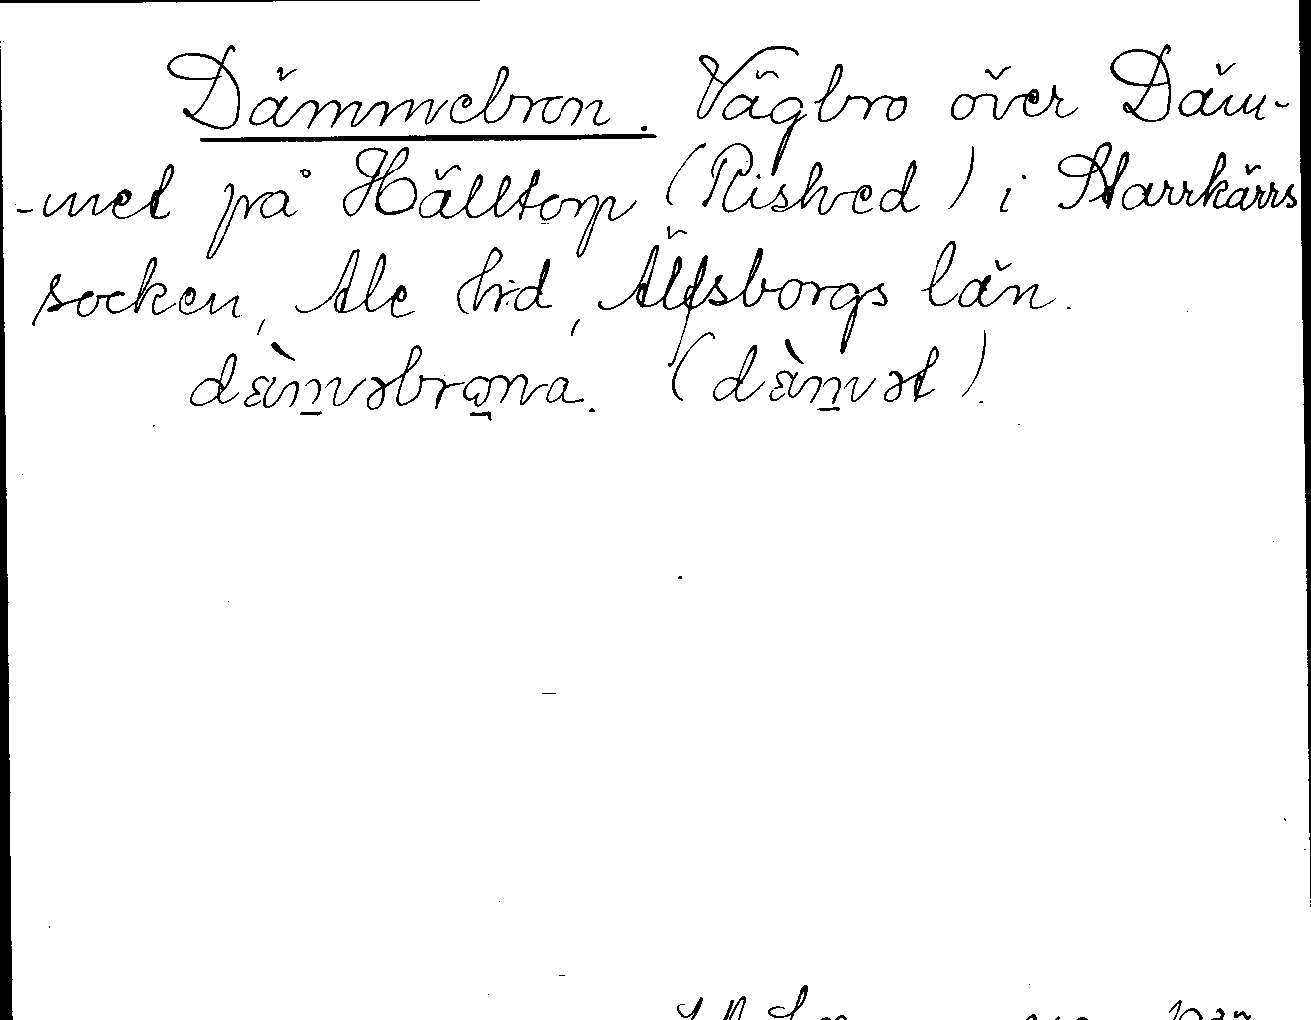 Dämmebron. Vägbro över Däm-
-met på Hälltorp (Rished) i Starrkärrs
socken, Ale hrd, Älfsborgs län.
dæ̀m̲əbrω̲na. (dæ̀m̲ət).